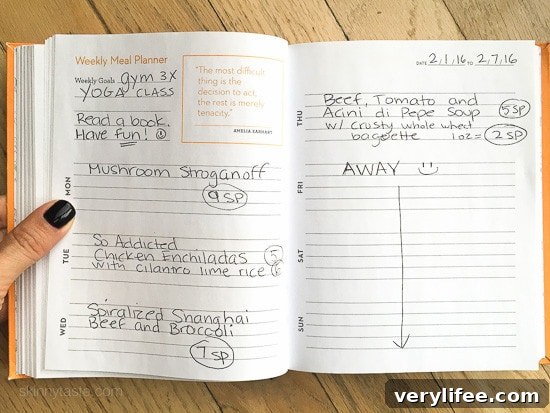 Weekly Meal Planner
Weekly Goals gym 3X
YOGA CLASS
Read a book.
Have fun!
"The most difficult
thing is the
decision to act,
the rest is merely
tenacity."
AMELIA EARHART
MON
Mushroom Stroganoff
9 SP
TUE
So Addicted
Chicken Enchiladas 5
with cilantro lime rice 6
WED
Spiralized Shanghai
Beef and Broccoli
7 SP
DATE 2,1,16 TO 2,7,16
THU
Beef, Tomato and
Acini di Pepe Soup 5 SP
w/ crusty whole wheat
bagette 1 oz = 2 SP
FRI
AWAY
SAT
SUN
skinnytaste.com
verylifee.com